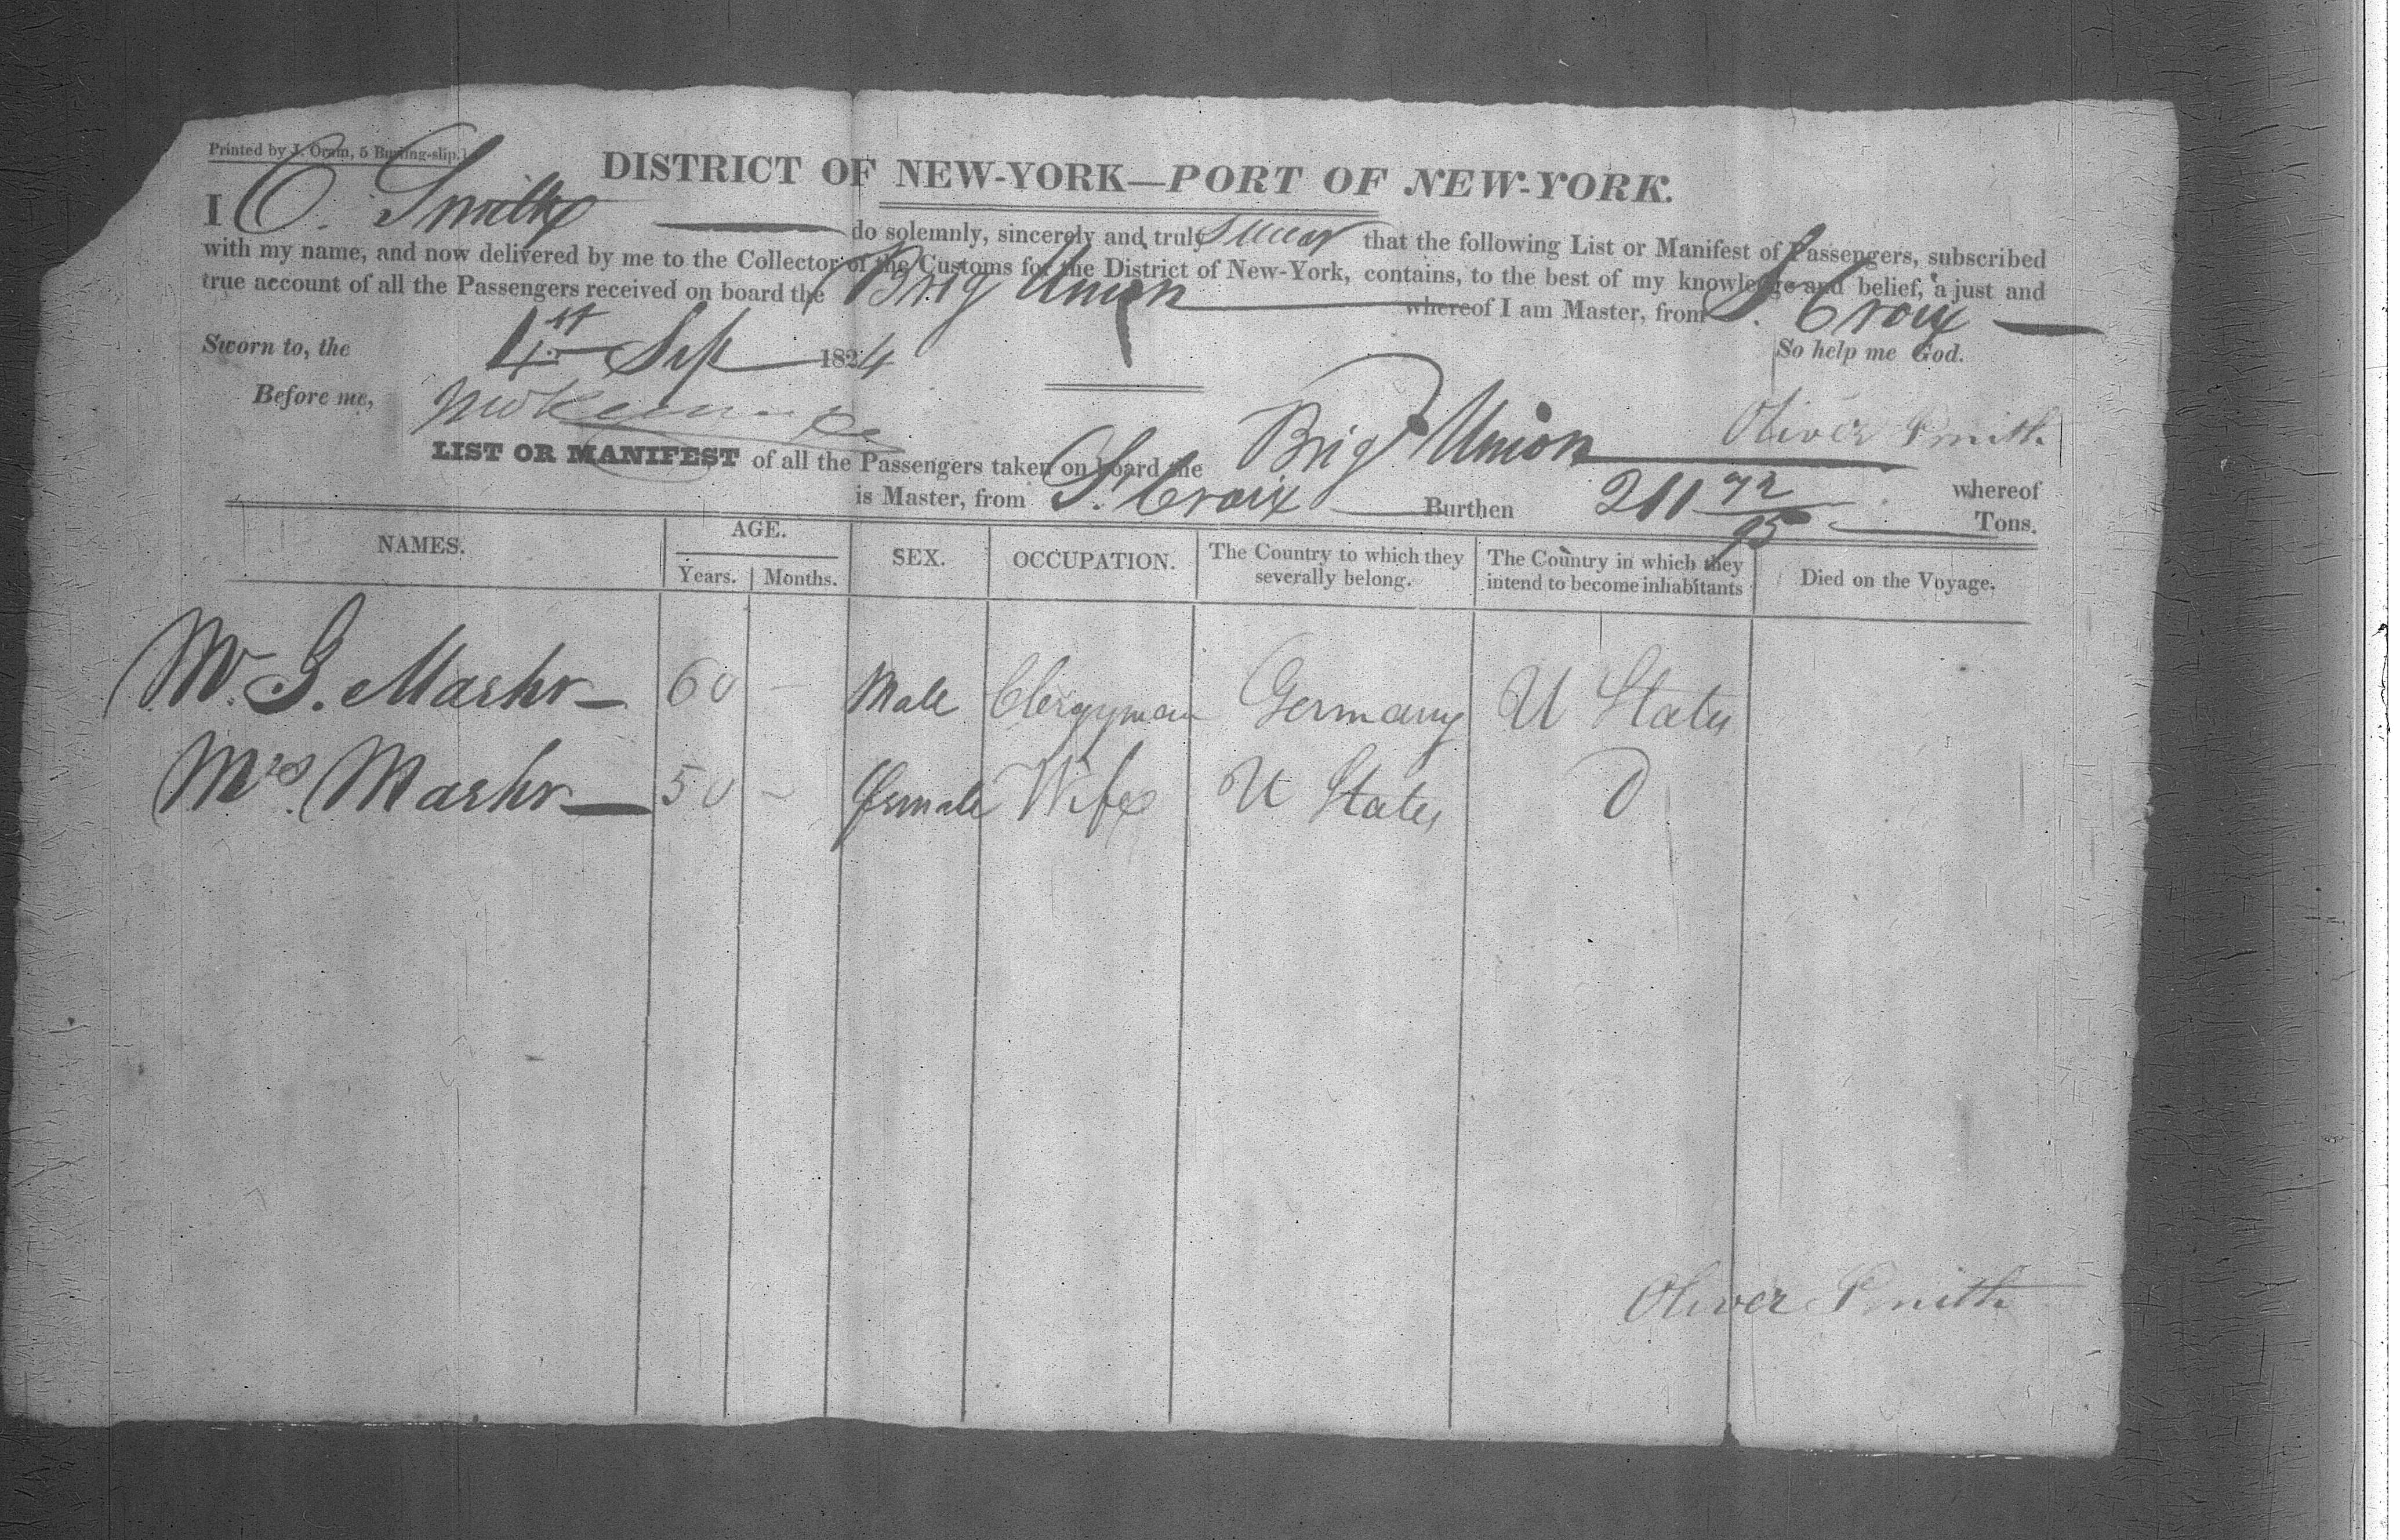 Printed by J. Oram, 5 Burling-slip.
DISTRICT OF NEW-YORK—PORT OF NEW-YORK.
I O. Smith do solemnly, sincerely and truly swear that the following List or Manifest of Passengers, subscribed
with my name, and now delivered by me to the Collector of the Customs for the District of New-York, contains, to the best of my knowledge and belief, a just and
true account of all the Passengers received on board the Brig Union whereof I am Master, from S. Croix
Sworn to, the 1st Sep 1824 So help me God.
Before me, Oliver Smith
LIST OR MANIFEST of all the Passengers taken on board the Brig Union whereof
is Master, from S. Croix Burthen 211 72/95 Tons.
NAMES. AGE. SEX. OCCUPATION. The Country to which they severally belong. The Country in which they intend to become inhabitants Died on the Voyage.
Years. Months.
Mr. G. Marhr 60 – Male Clergyman Germany U States
Mrs. Marhr 50 – female Wife U States D
Oliver Smith